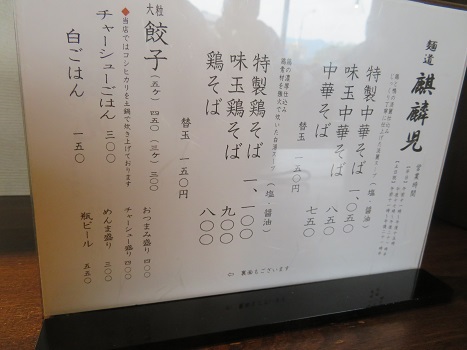 麺道 麒麟児
営業時間
特製中華そば(塩・醤油) 一、〇五〇
味玉中華そば 八五〇
中華そば 七五〇
替玉 一五〇円
特製鶏そば(塩・醤油) 一、一〇〇
味玉鶏そば 九〇〇
鶏そば 八〇〇
替玉 一五〇円
大粒 餃子(五ケ)四五〇(三ケ)三〇〇
◆当店ではコシヒカリを土鍋で炊き上げております
チャーシューごはん 三〇〇
白ごはん 一五〇
おつまみ盛り 四〇〇
チャーシュー盛り 四〇〇
めんま盛り 三〇〇
瓶ビール 五五〇
裏面もございます